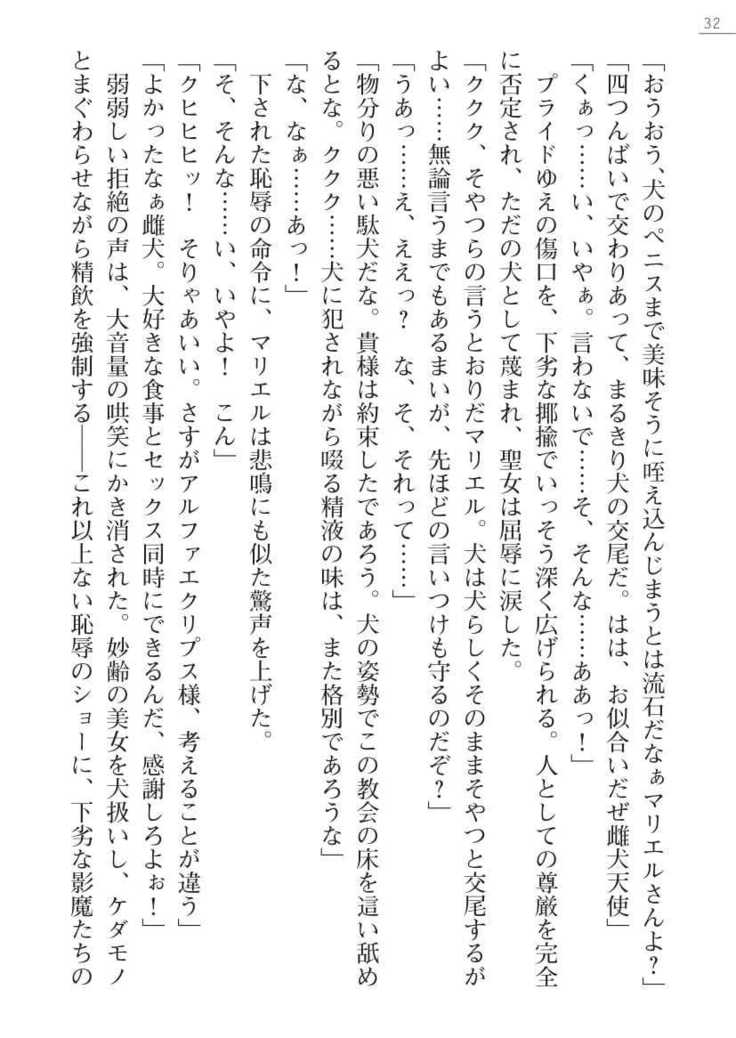 32
「おうおう、犬のペニスまで美味そうに咥え込んじまうとは流石だなぁマリエルさんよ？」
「四つんばいで交わりあって、まるきり犬の交尾だ。はは、お似合いだぜ雌犬天使」
「くぁっ……い、いやぁ。言わないで……そ、そんな……ああっ！」
　プライドゆえの傷口を、下劣な揶揄でいっそう深く広げられる。人としての尊厳を完全
に否定され、ただの犬として蔑まれ、聖女は屈辱に涙した。
「ククク、そやつらの言うとおりだマリエル。犬は犬らしくそのままそやつと交尾するが
よい……無論言うまでもあるまいが、先ほどの言いつけも守るのだぞ？」
「うあっ……え、ええっ？　な、そ、それって……」
「物分りの悪い駄犬だな。貴様は約束したであろう。犬の姿勢でこの教会の床を這い舐め
るとな。ククク……犬に犯されながら啜る精液の味は、また格別であろうな」
「な、なぁ……あっ！」
　下された恥辱の命令に、マリエルは悲鳴にも似た驚声を上げた。
「そ、そんな……い、いやよ！　こん」
「クヒヒヒッ！　そりゃあいい。さすがアルファエクリプス様、考えることが違う」
「よかったなぁ雌犬。大好きな食事とセックス同時にできるんだ、感謝しろよぉ！」
　弱弱しい拒絶の声は、大音量の哄笑にかき消された。妙齢の美女を犬扱いし、ケダモノ
とまぐわらせながら精飲を強制する――これ以上ない恥辱のショーに、下劣な影魔たちの